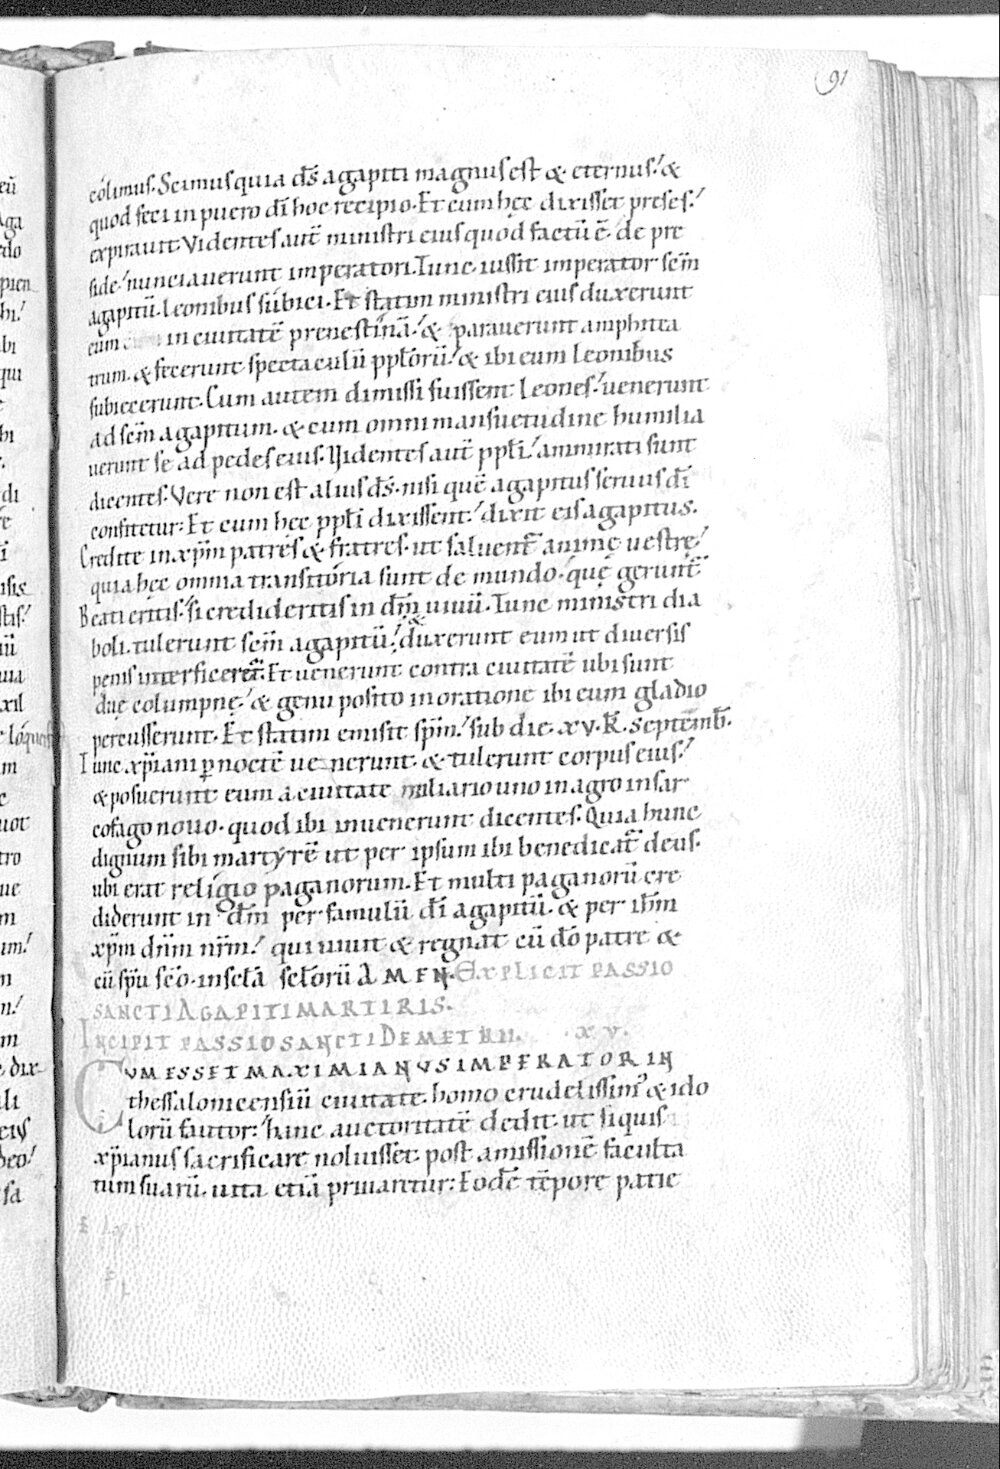 91
colimus. Scimus quia ds̄ agapiti magnus est & eternus! &
quod feci in puero dī hoc recipio. Et cum hęc dixisset preses!
expirauit. Videntes aut̄ ministri eius quod factū ē de pre
side! nunciauerunt imperatori. Tunc iussit imperator scm̄
agapitū leonibus subici. Et statim ministri eius duxerunt
eum in ciuitatē prenestinā! & parauerunt amphitea
trum. & fecerunt spectaculū ppl̄orū! & ibi eum leonibus
subiecerunt. Cum autem dimissi fuissent leones! uenerunt
ad scm̄ agapitum. & cum omni mansuetudine humilia
uerunt se ad pedes eius. Videntes aut̄ ppl̄i! ammirati sunt
dicentes. Vere non est alius ds̄. nisi quē agapitus seruus dī
confitetur: Et cum hęc ppl̄i dixissent! dixit eis agapitus.
Credite in xpm̄ patres & fratres. ut saluent̄ animę uestrę!
quia hęc omnia transitoria sunt de mundo. quę gerunt̄
Beati eritis! si credideritis in dm̄ uiuū. Tunc ministri dia
boli. tulerunt scm̄ agapitū! & duxerunt eum ut diuersis
penis interficeret̄. Et uenerunt contra ciuitatē ubi sunt
duę columpnę! & genu posito in oratione ibi eum gladio
percusserunt. Et statim emisit spm̄! sub die. xv. k̄. septemb̄.
Tunc xp̄iani p noctē uenerunt. & tulerunt corpus eius!
& posuerunt eum a ciuitate miliario uno in agro in sar
cofago nouo. quod ibi inuenerunt dicentes. Quia hunc
dignum sibi martyrē ut per ipsum ibi benedicat̄ deus.
ubi erat religio paganorum. Et multi paganorū cre
diderunt in dm̄ per famulū dī agapitū. & per ihm̄
xpm̄ dnm̄ nrm̄! qui uiuit & regnat cū dō patre &
cū spū scō. in scl̄a scl̄orū AMEN. EXPLICIT PASSIO
SANCTI AGAPITI MARTIRIS.
INCIPIT PASSIO SANCTI DEMETRII. XV.
CUM ESSET MAXIMIANUS IMPERATOR IN
thessalonicensiū ciuitate. homo crudelissim' & ido
lorū fautor: hanc auctoritatē dedit. ut siquis
xp̄ianus sacrificare noluisset. post amissionē faculta
tum suarū. uita etiā priuaretur: Eodē tēpore patie